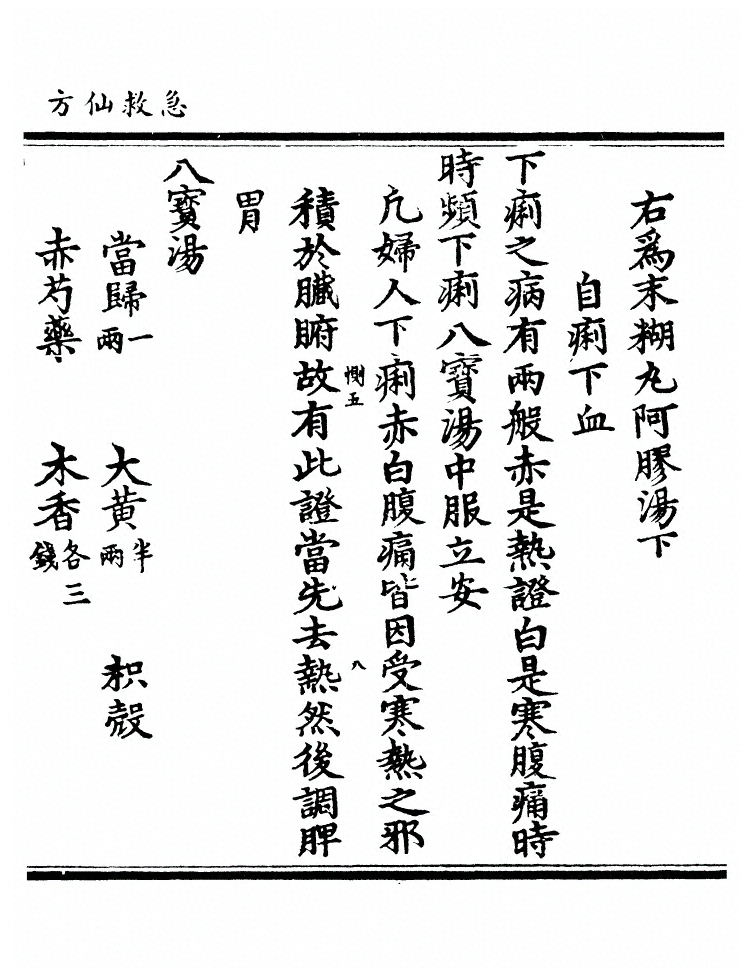 急救仙方
右為末糊丸阿膠湯下
自痢下血
下痢之病有兩般赤是熱證白是寒腹痛時
時頻下痢八寶湯中服立安
凡婦人下痢赤白腹痛皆因受寒熱之邪
惻五
八
積於臟腑故有此證當先去熱然後調脾
胃
八寶湯
當歸一兩 大黃半兩 枳殼
赤芍藥 木香各三錢